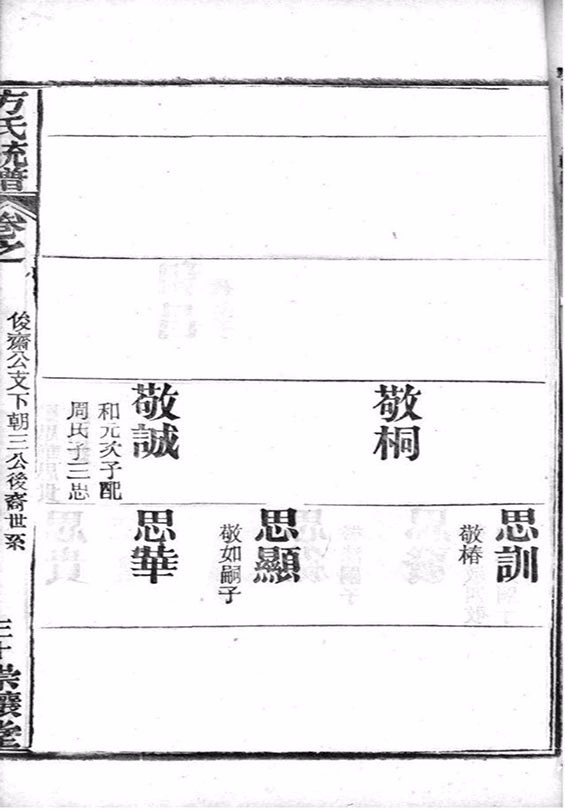 敬桐
敬誠
和元次子配
周氏子三
思訓
敬椿
思顯
敬如嗣子
思華
方氏統譜
卷之
俊齋公支下朝三公後裔世系
三十